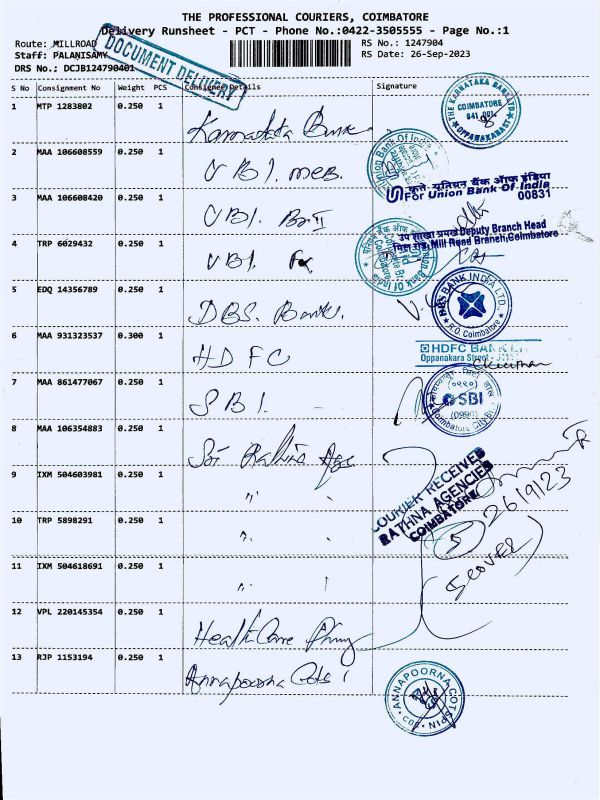 THE PROFESSIONAL COURIERS, COIMBATORE
Delivery Runsheet - PCT - Phone No.:0422-3505555 - Page No.:1
Route: MILLROAD
RS No.: 1247904
Staff: PALANISAMY
RS Date: 26-Sep-2023
DRS No.: DCJB124790401
DOCUMENT DELIVERY
S No Consignment No Weight PCS Consignee Details Signature
1 MTP 1283802 0.250 1 Karnataka Bank
THE KARNATAKA BANK LTD
COIMBATORE
641 001
OPPANAKARAST
2 MAA 106608559 0.250 1 UBI. meB.
Union Bank Of India
कृते, यूनियन बैंक ऑफ इंडिया
For Union Bank Of India
00831
3 MAA 106608420 0.250 1 UBI. Br II
उप शाखा प्रमुख Deputy Branch Head
मिल रोड, Mill Road Branch, Coimbatore
4 TRP 6029432 0.250 1 UBI.
Union Bank Of India
5 EDQ 14356789 0.250 1 DBS. Bank.
DBS BANK INDIA LTD.
R.O. Coimbatore
6 MAA 931323537 0.300 1 HDFC
HDFC BANK
Oppanakara Street
7 MAA 861477067 0.250 1 SBI.
SBI
8 MAA 106354883 0.250 1 Sri Rathna Ags
COURIER RECEIVED
RATHNA AGENCIES
COIMBATORE
26/9/23
9 IXM 504603981 0.250 1 "
10 TRP 5898291 0.250 1 "
5
(5 cover)
11 IXM 504618691 0.250 1 "
12 VPL 220145354 0.250 1 HealthCare Phmy
13 RJP 1153194 0.250 1 Annapoorna Cots
ANNAPOORNA COTSPIN
CBE